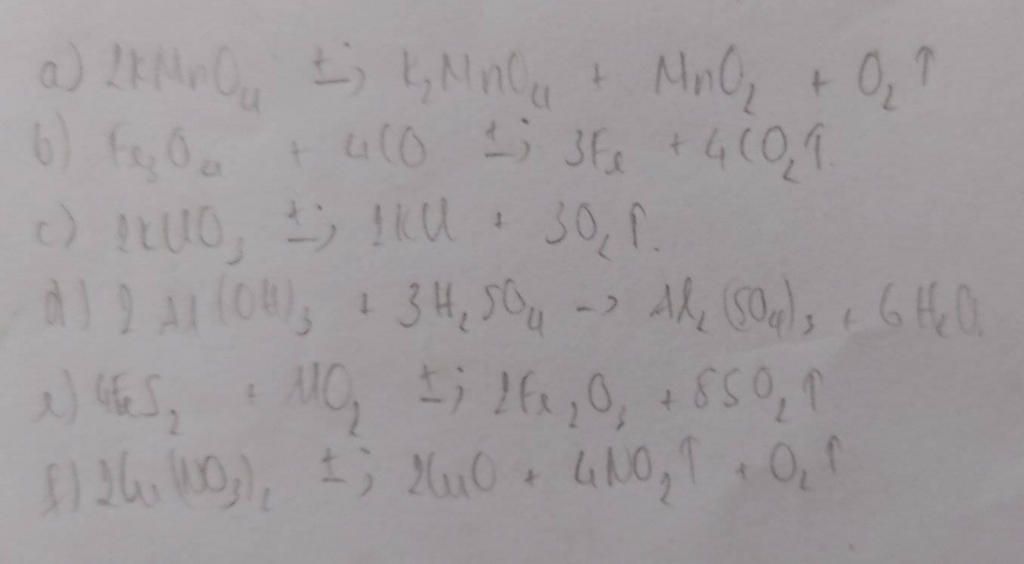 a) 2KMnO₄ t°→ K₂MnO₄ + MnO₂ + O₂↑
b) Fe₃O₄ + 4CO t°→ 3Fe + 4CO₂↑.
c) 2KClO₃ t°→ 2KCl + 3O₂↑.
d) 2Al(OH)₃ + 3H₂SO₄ -> Al₂(SO₄)₃ + 6H₂O.
e) 4FeS₂ + 11O₂ t°→ 2Fe₂O₃ + 8SO₂↑
f) 2Cu(NO₃)₂ t°→ 2CuO + 4NO₂↑ + O₂↑